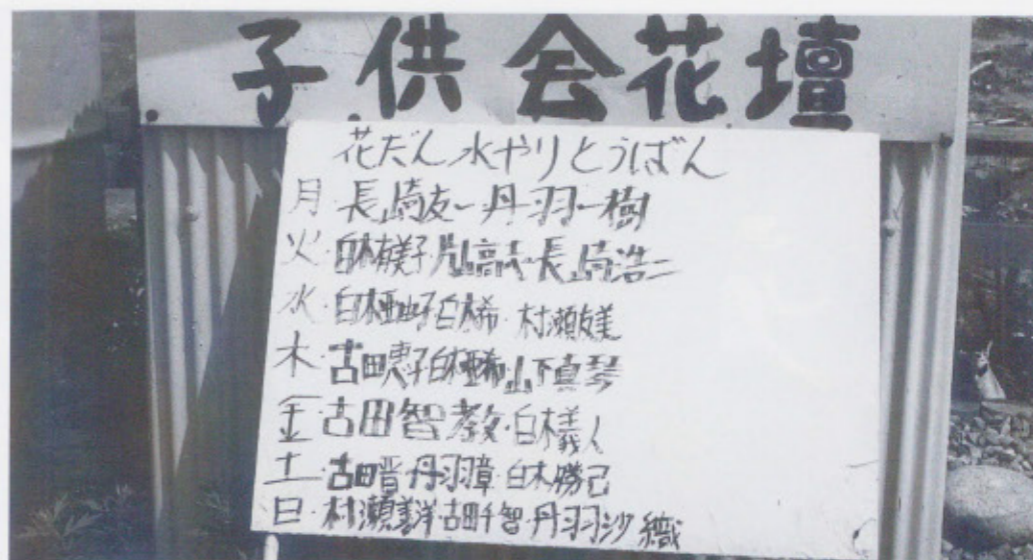 子供会花壇
花だん水やりとうばん
月 長崎友一・丹羽一樹
火・白木有美子・片山高志・長崎浩二
水・白木亜由子・白木希・村瀬友美
木・古田恵子・白木亜希・山下真琴
金・古田智教・白木義人
土・古田晋・丹羽章・白木勝己
日・村瀬善洋・古田千智・丹羽沙織